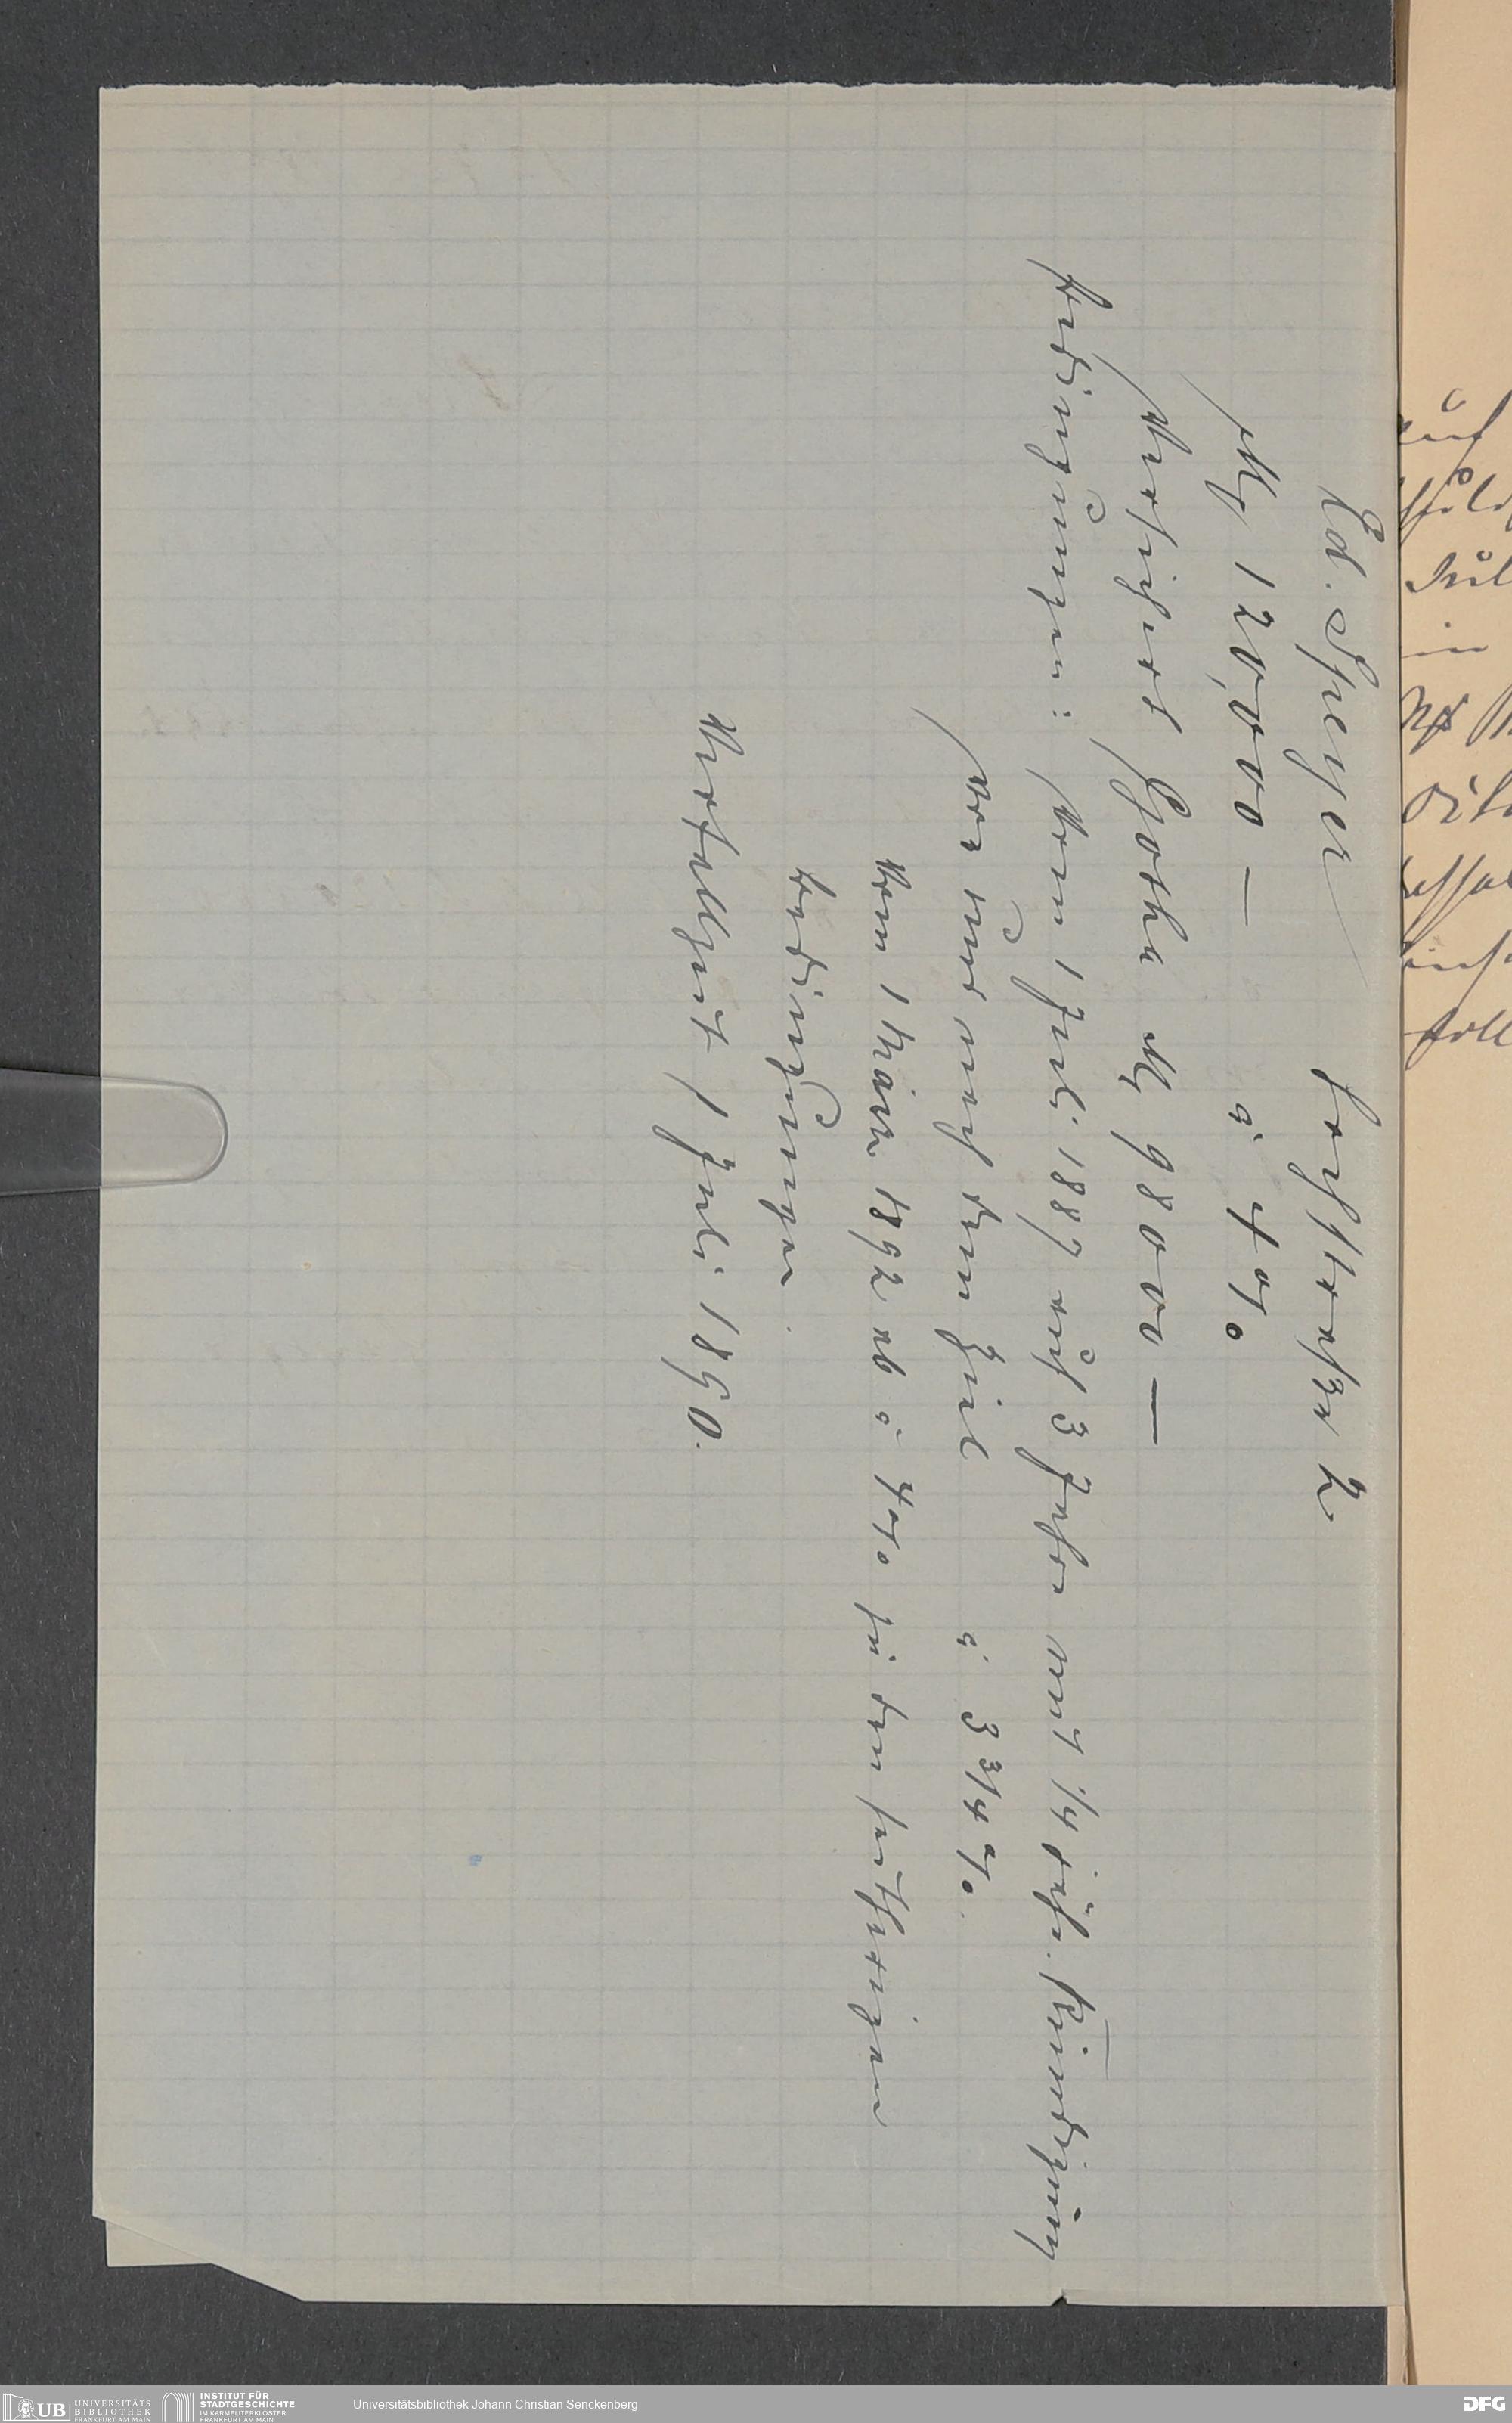 Ed. Speyer Hochstraße 2.
M 120,000 — à 4 %
Versichert Gotha M 98000 —
Bedingungen: Vom 1 Juli 1887 auf 3 Jahre mit 1/4 jähr. Kündigung
vor und nach dem Ziel à 3 3/4 %.
Vom 1 März 1892 ab à 4 % zu den seitherigen
Bedingungen.
Verfallzeit 1 Juli 1890.
auf
in
soll
UB UNIVERSITÄTS
BIBLIOTHEK
FRANKFURT AM MAIN
INSTITUT FÜR
STADTGESCHICHTE
IM KARMELITERKLOSTER
FRANKFURT AM MAIN
Universitätsbibliothek Johann Christian Senckenberg
DFG